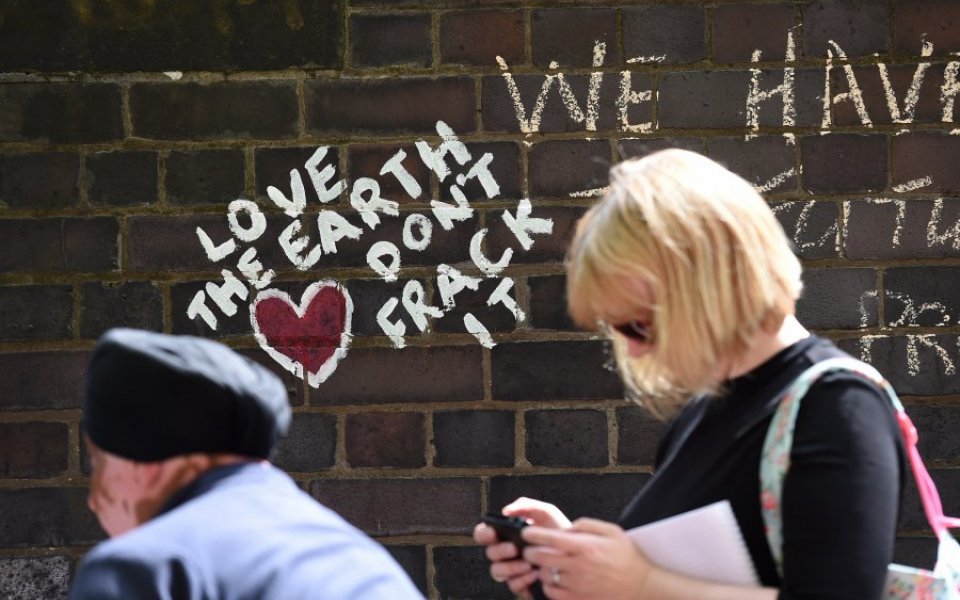 LOVE
THE EARTH
DON'T
FRACK
IT
WE HAVE